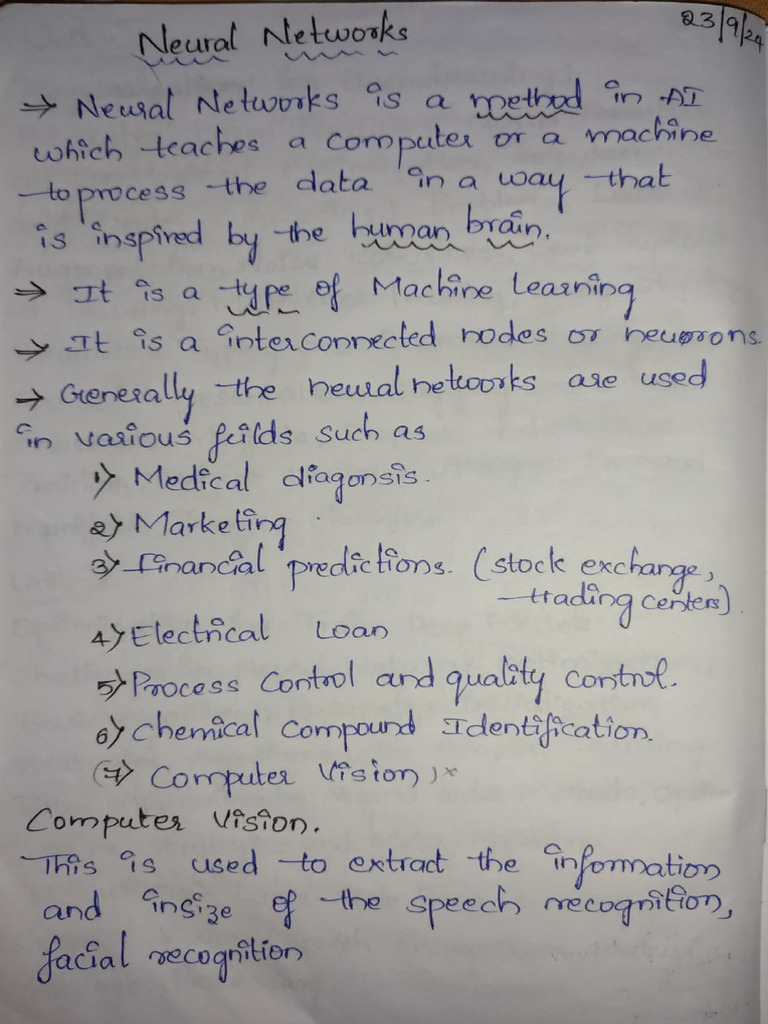 23/9/24
Neural Networks
→ Neural Networks is a method in AI
which teaches a computer or a machine
to process the data in a way that
is inspired by the human brain.
→ It is a type of Machine Learning
→ It is a interconnected nodes or neuorons.
→ Generally the neural networks are used
in various feilds such as
1) Medical diagonsis.
2) Marketing
3) Financial predictions. (stock exchange,
trading centers).
4) Electrical Loan
5) Process Control and quality control.
6) Chemical Compound Identification.
(7) Computer Vision) x
Computer Vision.
This is used to extract the information
and insize of the speech recognition,
facial recognition